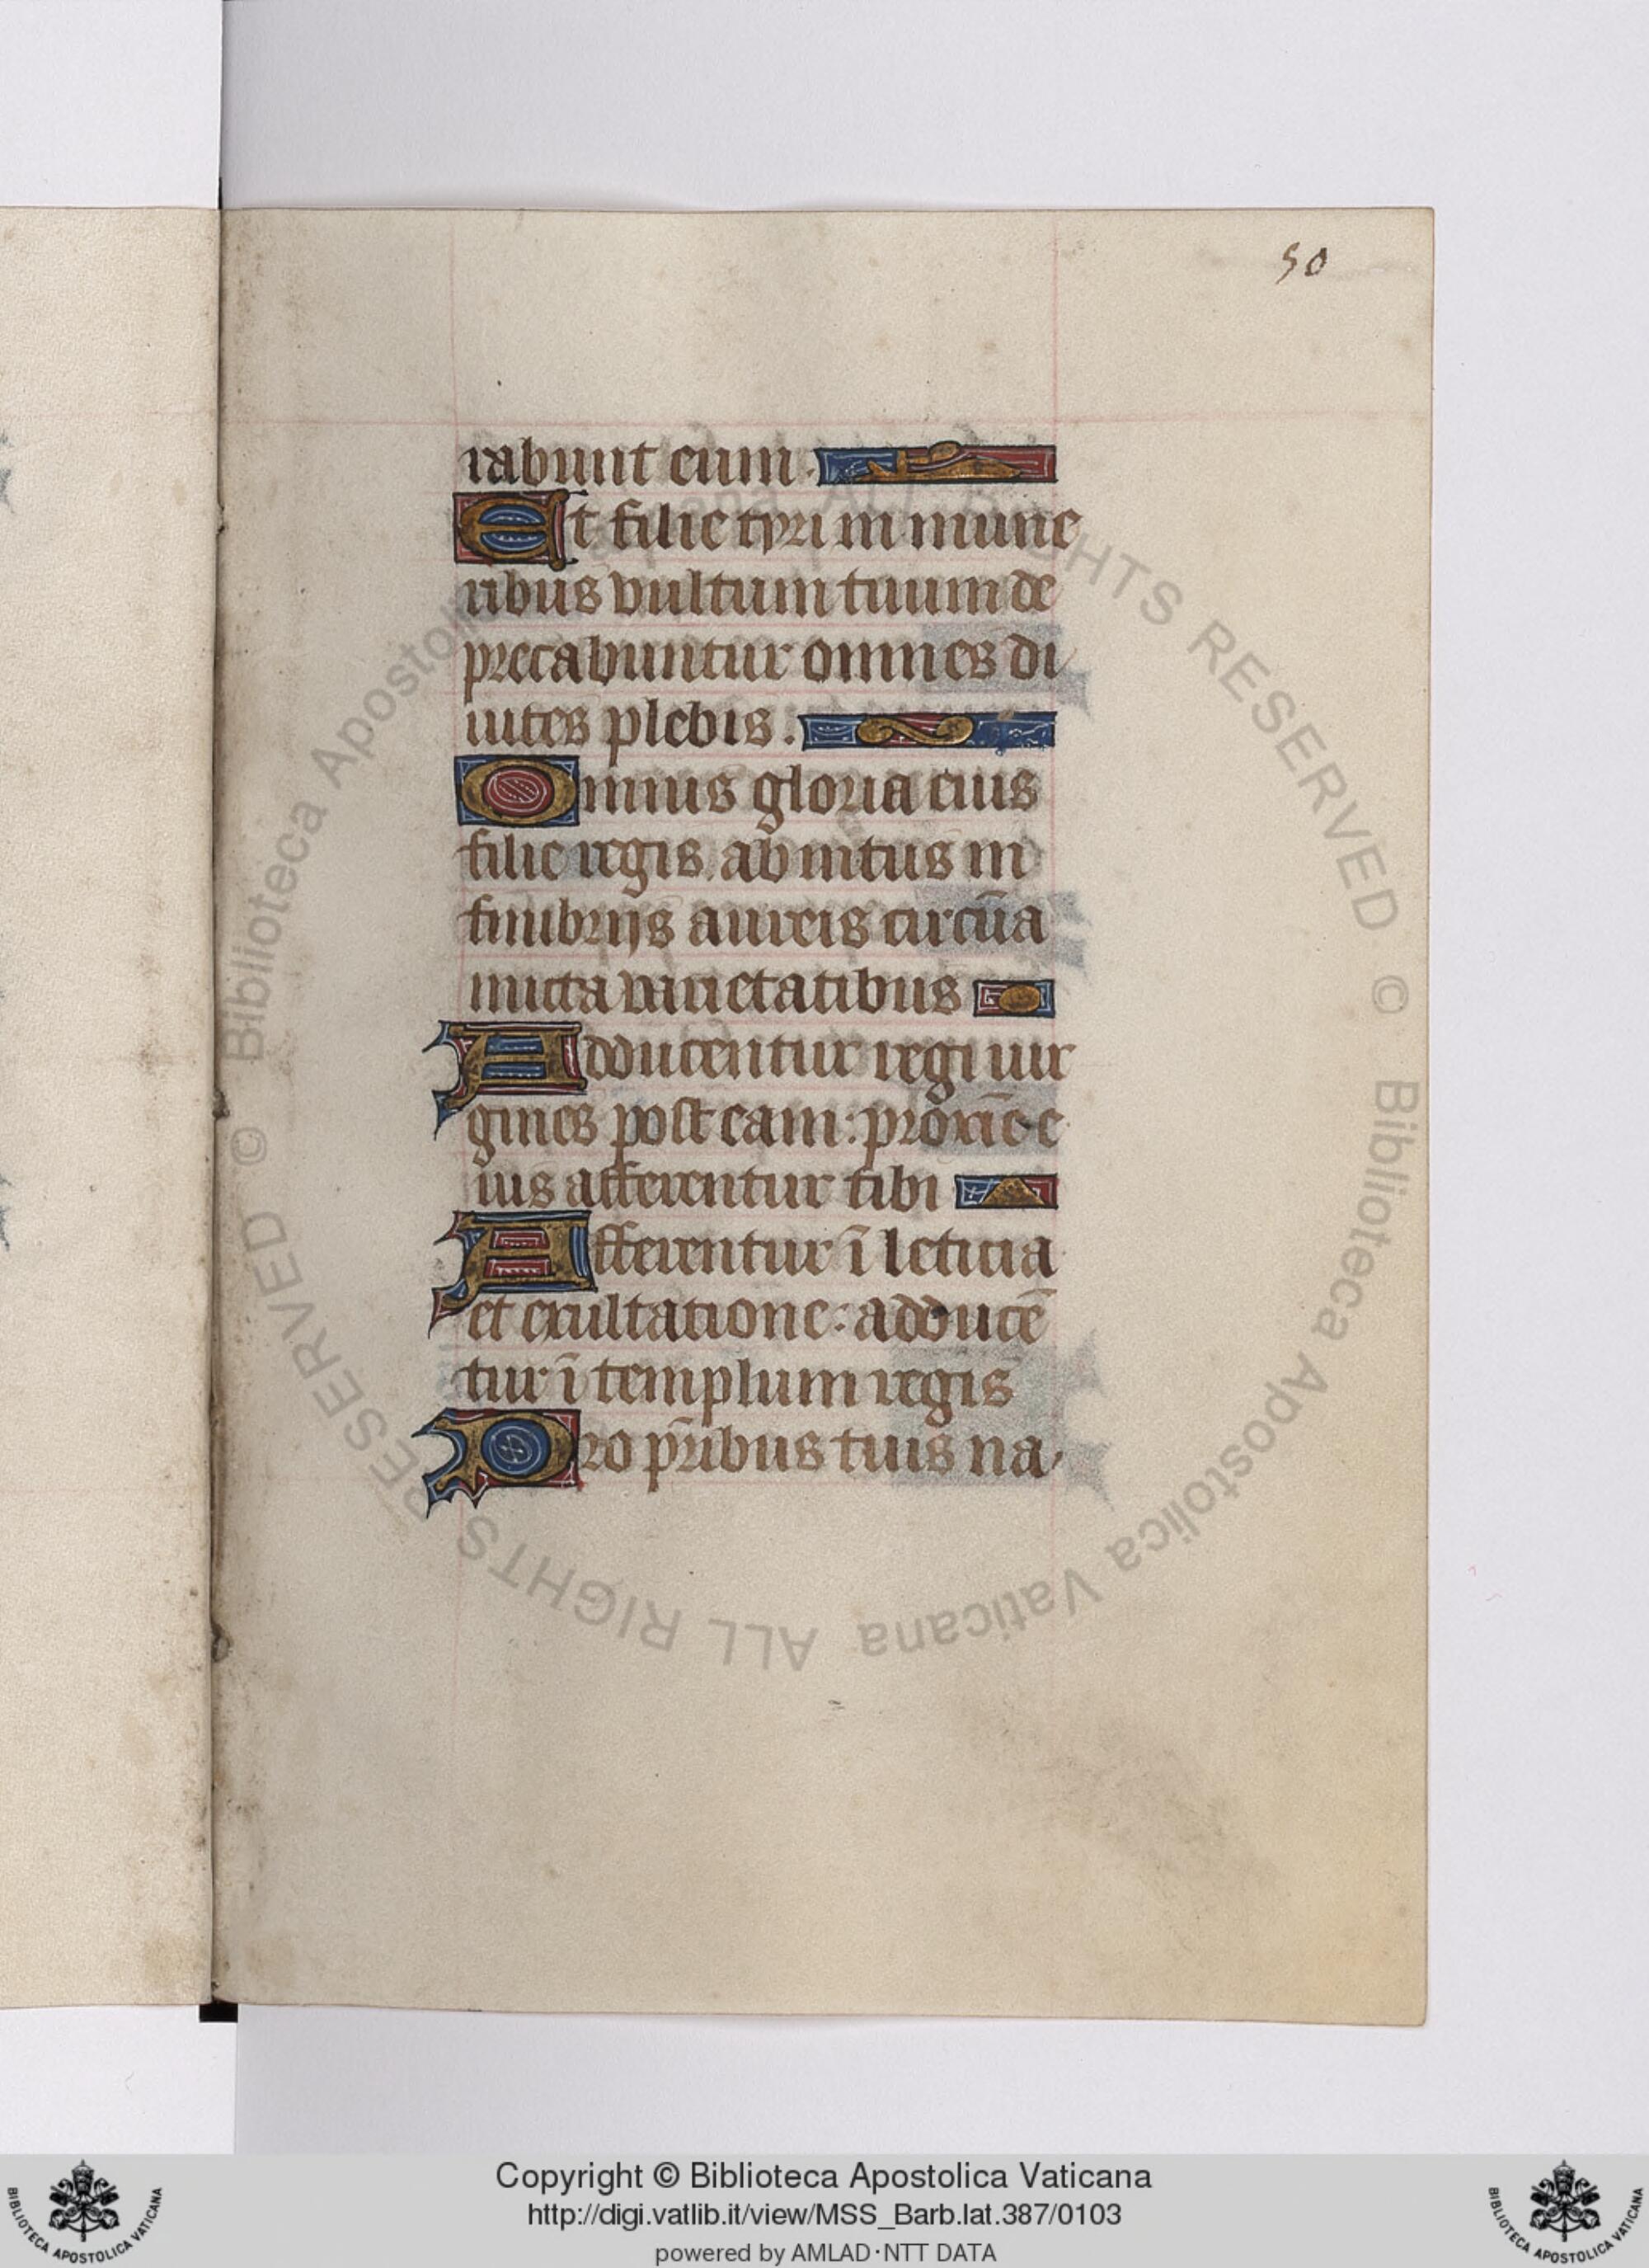 50
rabunt eum.
Et filie tyri in mune
ribus vultum tuum de
precabuntur omnes di
uites plebis.
Omnis gloria eius
filie regis abintus in
fimbrijs aureis circũa
micta varietatibus
Adducentur regi uir
gines post eam: proxĩe e
ius afferentur tibi
Afferentur ĩ leticia
et exultatione: adducẽ
tur ĩ templum regis
Pro pr̃ibus tuis na
© Biblioteca Apostolica Vaticana ALL RIGHTS RESERVED © Biblioteca Apostolica Vaticana ALL RIGHTS RESERVED
Copyright © Biblioteca Apostolica Vaticana
http://digi.vatlib.it/view/MSS_Barb.lat.387/0103
powered by AMLAD·NTT DATA
BIBLIOTECA APOSTOLICA VATICANA
BIBLIOTECA APOSTOLICA VATICANA